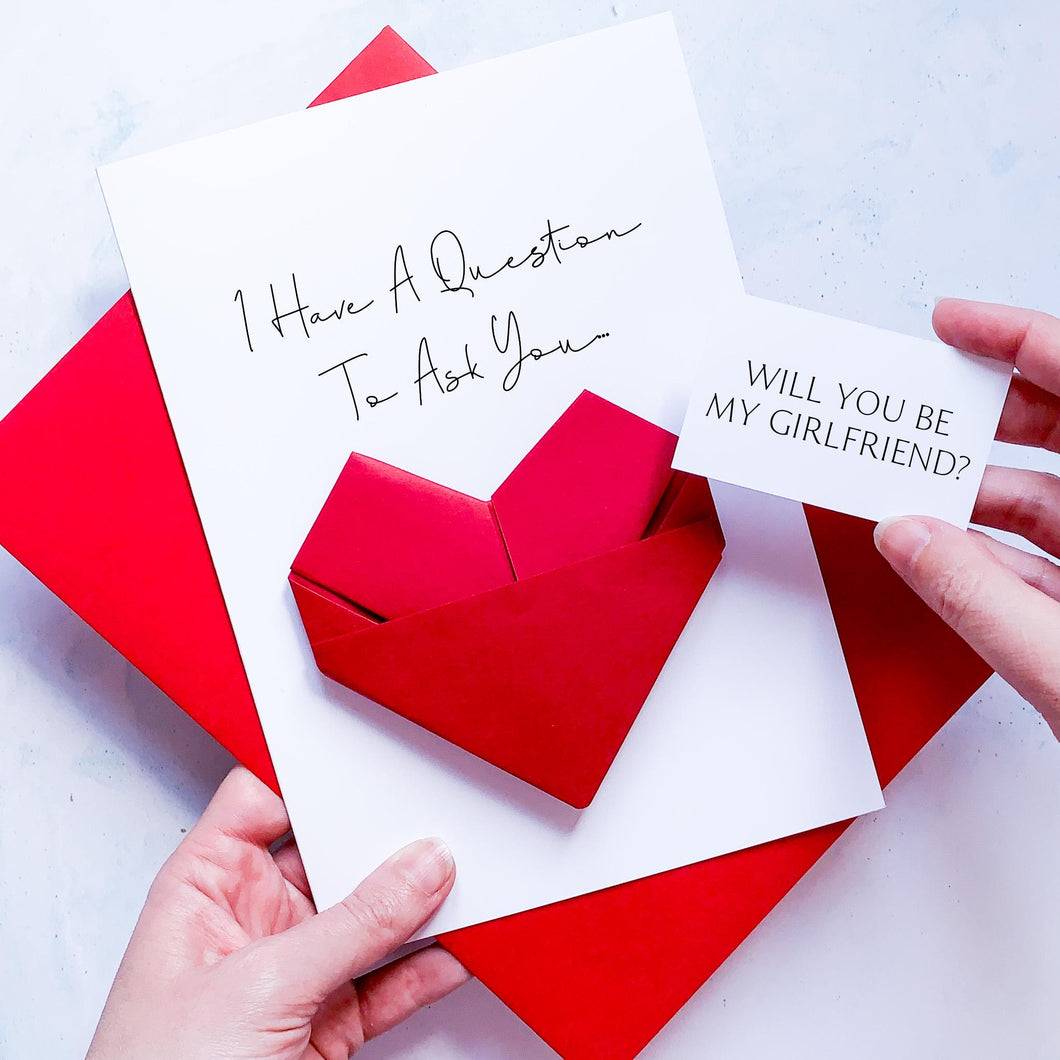 I Have A Question
To Ask You...
WILL YOU BE
MY GIRLFRIEND?